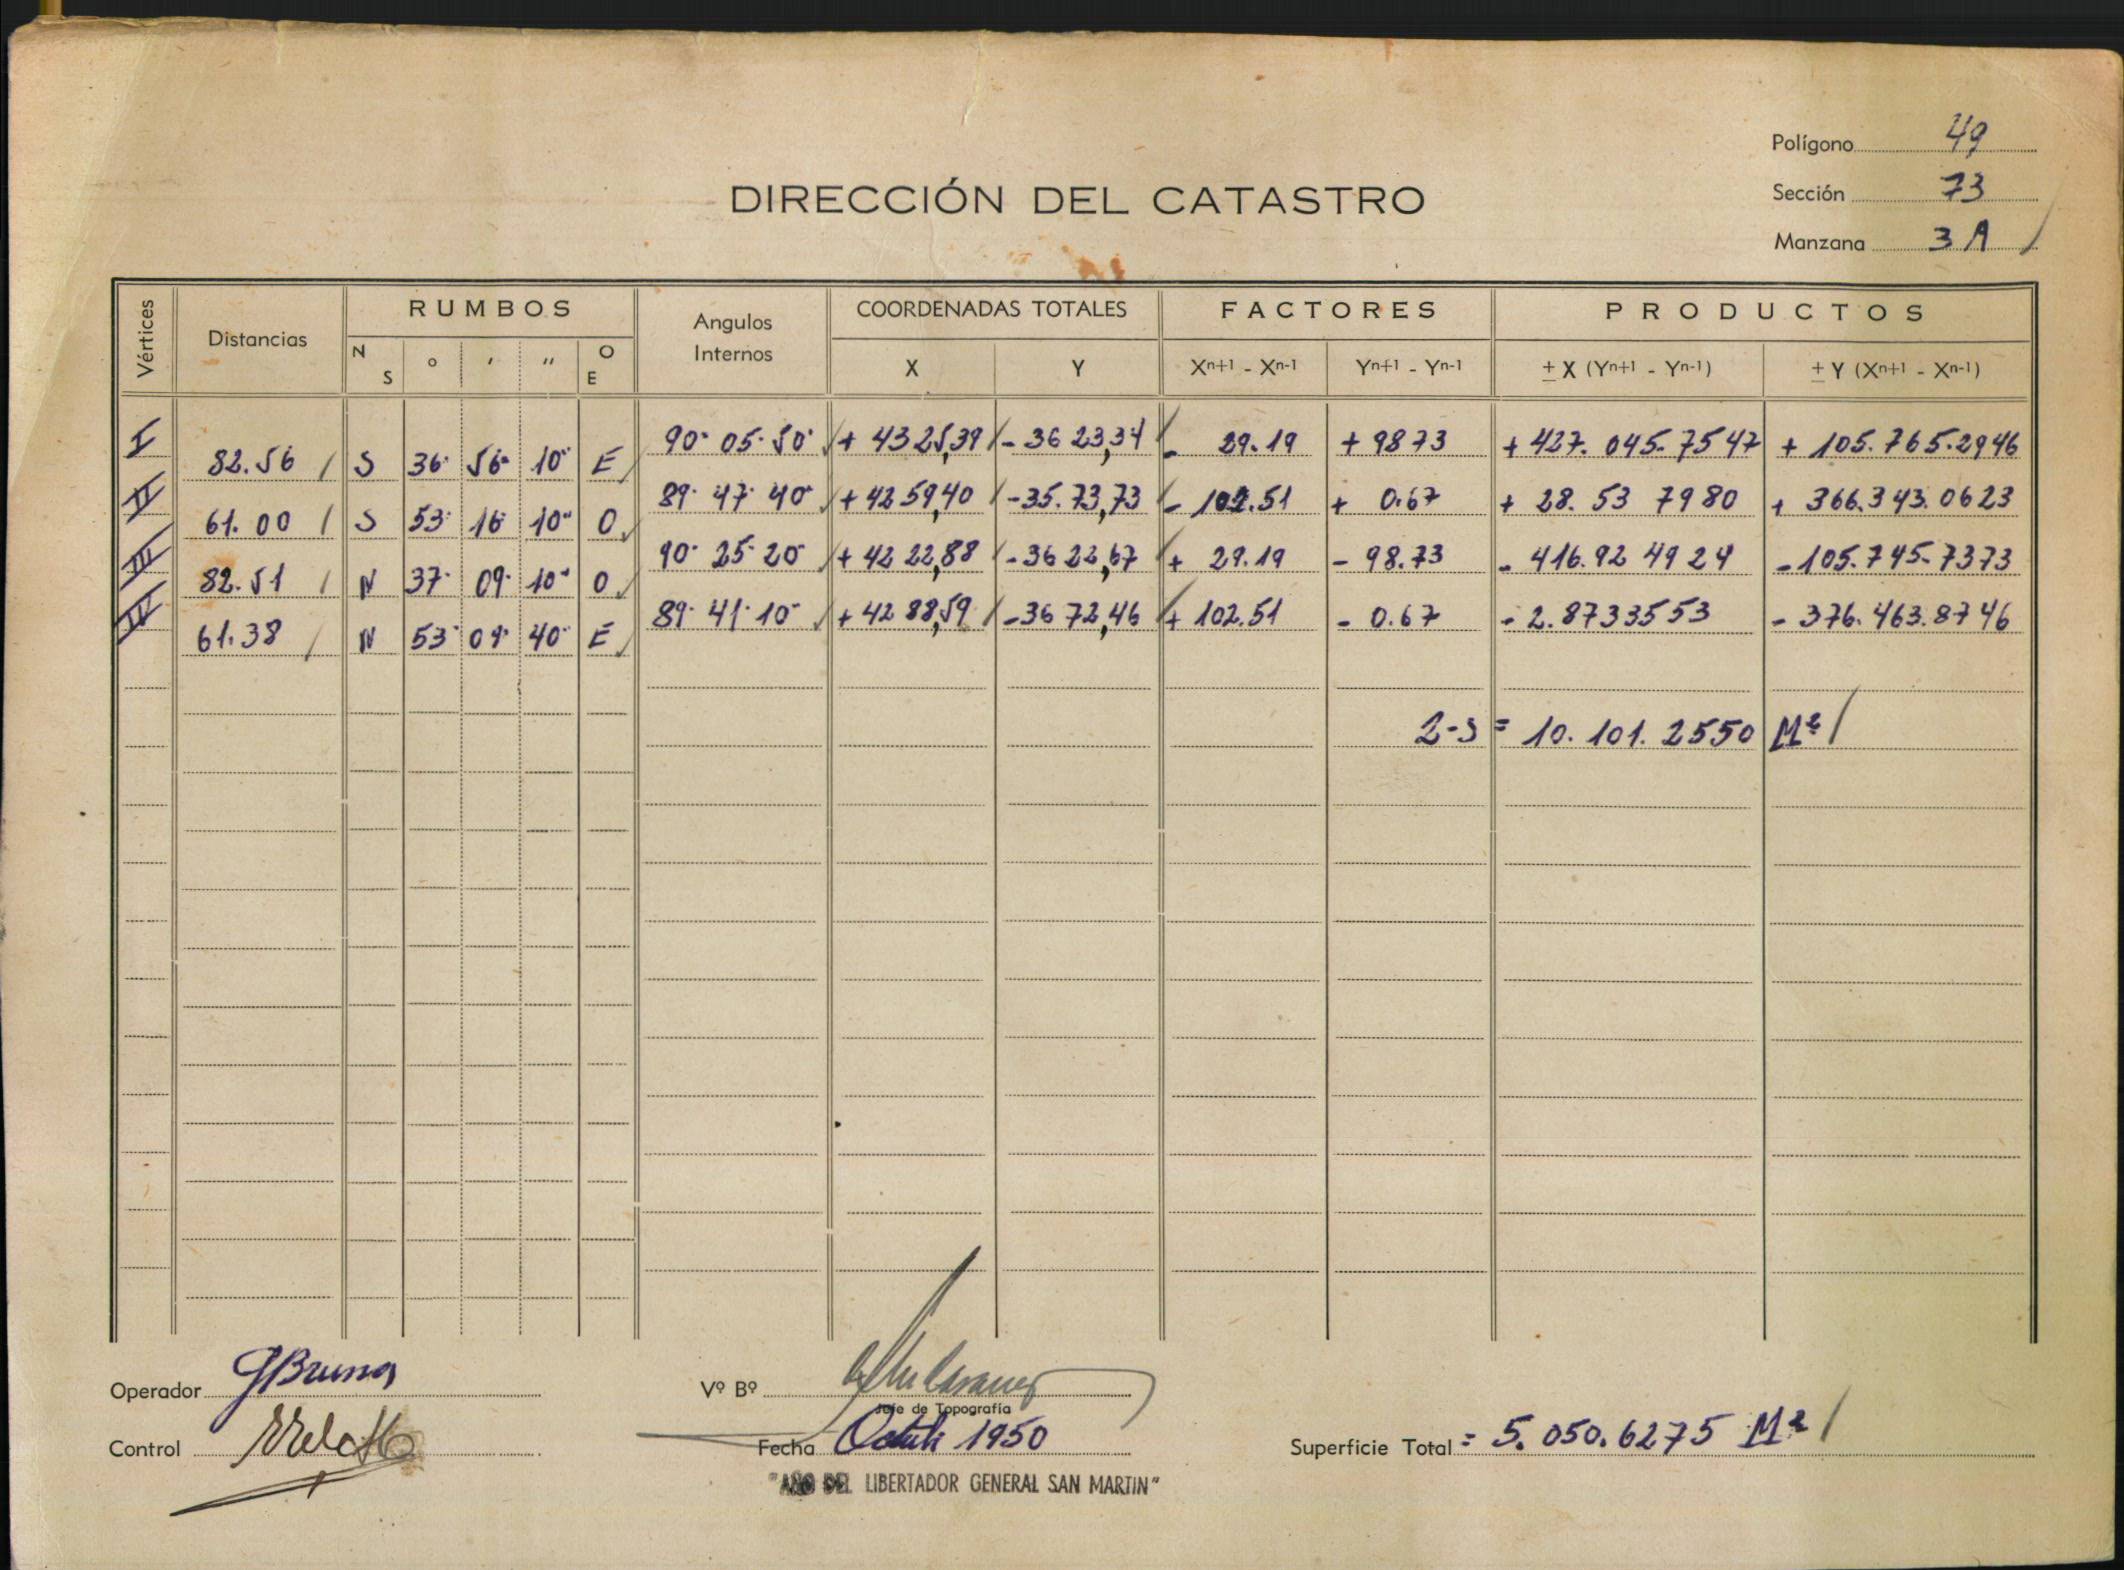 Polígono 49
DIRECCIÓN DEL CATASTRO
Sección 73
Manzana 3 A
Vértices Distancias RUMBOS Angulos Internos COORDENADAS TOTALES FACTORES PRODUCTOS
N S ° ' " O E X Y Xn+1 - Xn-1 Yn+1 - Yn-1 ± X (Yn+1 - Yn-1) ± Y (Xn+1 - Xn-1)
I 90° 05' 50" + 4325,39 - 3623,34 - 29.19 + 98 73 + 427. 045. 7547 + 105.765.2946
82.56 S 36° 56' 10" E
II 89° 47' 40" + 4259,40 - 35.73,73 - 102.51 + 0.67 + 28. 53 7980 + 366.343.0623
61.00 S 53° 16' 10" O
III 90° 25' 20" + 4222,88 - 3622,67 + 29.19 - 98.73 - 416.92 4924 - 105.745.7373
82.51 N 37° 09' 10" O
IV 89° 41' 10" + 4288,59 - 3672,46 + 102.51 - 0.67 - 2.8733553 - 376.463.8746
61.38 N 53° 09' 40" E
2-S = 10. 101. 2550 M²
Operador GBruna
Vº Bº
Jefe de Topografía
Control
Fecha 1950
Superficie Total = 5. 050. 6275 M²
"AÑO DEL LIBERTADOR GENERAL SAN MARTIN"